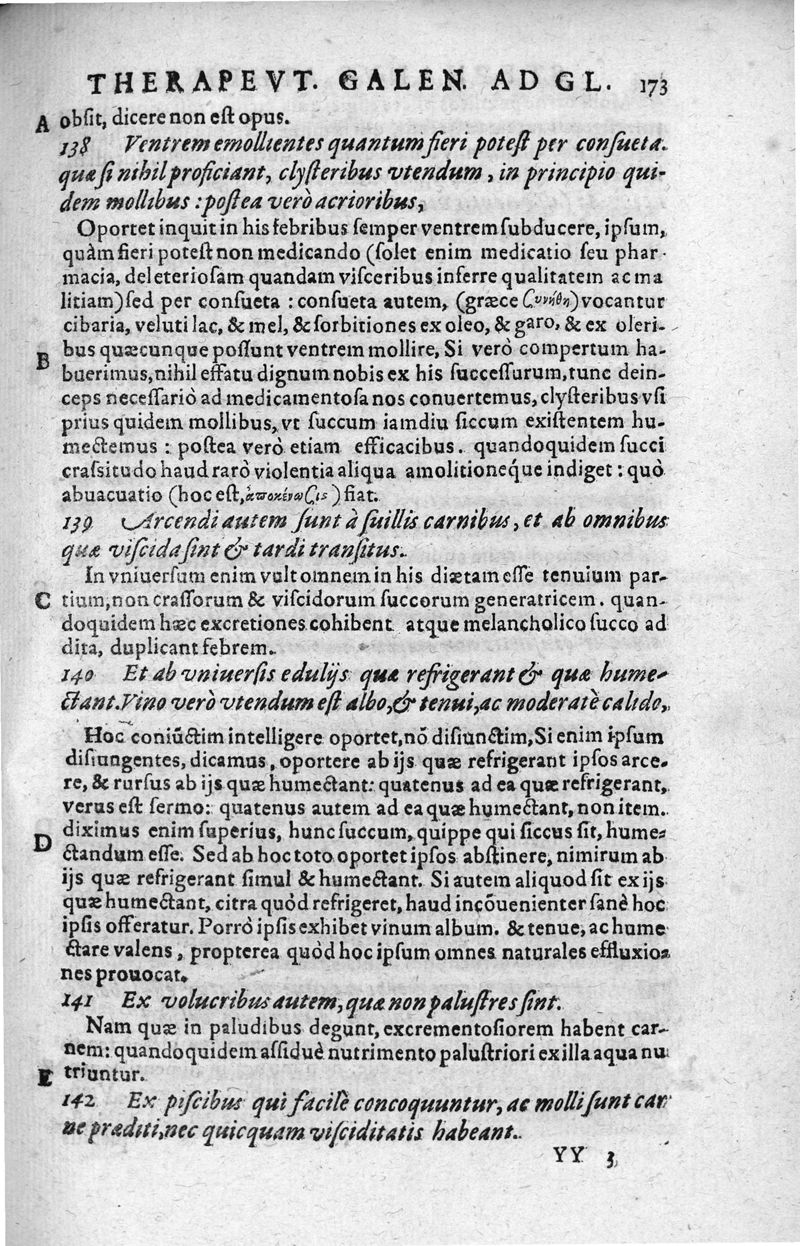 THERAPEVT. GALEN. AD GL. 173
A obſit, dicere non eſt opus.
138 Ventrem emollientes quantum fieri poteſt per conſueta.
quæ ſi nihil proficiant, clyſteribus vtendum, in principio qui-
dem mollibus: poſtea verò acrioribus,
Oportet inquit in his febribus ſemper ventrem ſubducere, ipſum,
quàm fieri poteſt non medicando (ſolet enim medicatio ſeu phar-
macia, deleterioſam quandam viſceribus inferre qualitatem ac ma
litiam) ſed per conſueta: conſueta autem, (græce ϲυνήθη) vocantur
cibaria, veluti lac, & mel, & ſorbitiones ex oleo, & garo, & ex oleri-
B bus quæcunque poſſunt ventrem mollire, Si verò compertum ha-
buerimus, nihil effatu dignum nobis ex his ſucceſſurum, tunc dein-
ceps neceſſariò ad medicamentoſa nos conuertemus, clyſteribus vſi
prius quidem mollibus, vt ſuccum iamdiu ſiccum exiſtentem hu-
mectemus: poſtea verò etiam efficacibus. quandoquidem ſucci
craſsitudo haud rarò violentia aliqua amolitioneq́ue indiget: quò
abuacuatio (hoc eſt, ἀποκένωϲις) fiat.
139 Arcendi autem ſunt à ſuillis carnibus, et ab omnibus
quæ viſcida ſint & tardi tranſitus.
In vniuerſum enim vult omnem in his diætam eſſe tenuium par-
C tium, non craſſorum & viſcidorum ſuccorum generatricem. quan-
doquidem hæc excretiones cohibent atque melancholico ſucco ad
dita, duplicant febrem.
140 Et ab vniuerſis edulijs quæ refrigerant & quæ hume-
ctant. Vino verò vtendum eſt albo, & tenui, ac moderatè calido,
Hoc coniūctim intelligere oportet, nō diſiunctim, Si enim ipſum
diſiungentes, dicamus, oportere ab ijs quæ refrigerant ipſos arce-
re, & rurſus ab ijs quæ humectant: quatenus ad ea quæ refrigerant,
verus eſt ſermo: quatenus autem ad ea quæ humectant, non item.
D diximus enim ſuperius, hunc ſuccum, quippe qui ſiccus ſit, hume-
ctandum eſſe. Sed ab hoc toto oportet ipſos abſtinere, nimirum ab
ijs quæ refrigerant ſimul & humectant. Si autem aliquod ſit ex ijs
quæ humectant, citra quòd refrigeret, haud incōuenienter ſanè hoc
ipſis offeratur. Porrò ipſis exhibet vinum album. & tenue, ac hume
ctare valens, propterea quòd hoc ipſum omnes naturales effluxio-
nes prouocat.
141 Ex volucribus autem, quæ non paluſtres ſint.
Nam quæ in paludibus degunt, excrementoſiorem habent car-
nem: quandoquidem aſſiduè nutrimento paluſtriori ex illa aqua nu
E triuntur.
142 Ex piſcibus qui facilè concoquuntur, ac molli ſunt car
ne præditi, nec quicquam viſciditatis habeant.
YY 3